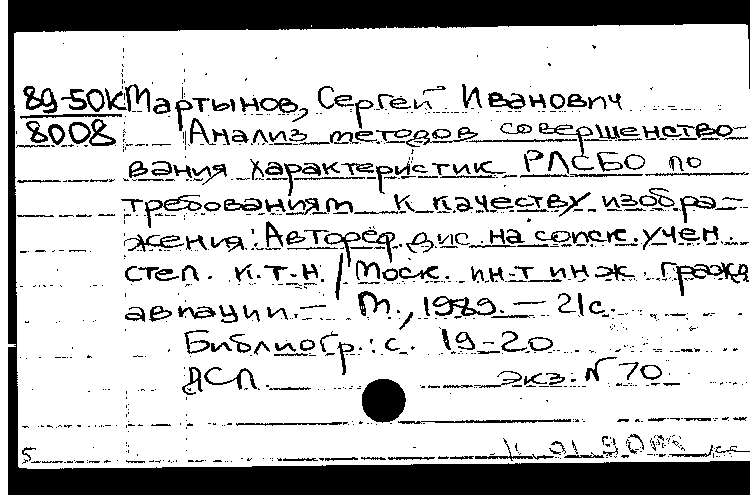 89-50К Мартынов, Сергей Иванович
8008 Анализ методов совершенство-
вания характеристик РЛСБО по
требованиям к качеству изобра-
жения: Автореф. дис. на соиск. учен.
степ. к.т.н. / Моск. ин-т инж. гражд.
авиации. — М., 1989. — 21с.
Библиогр.: с. 19-20
ДСП. экз. № 70
5